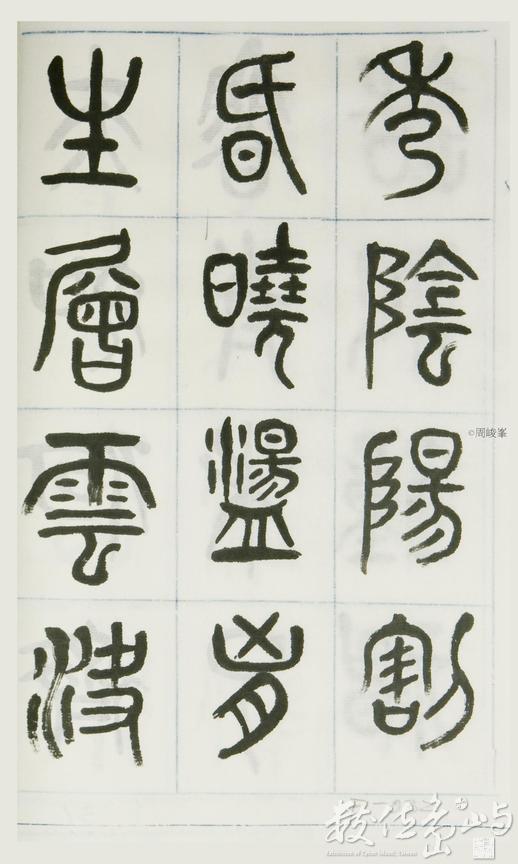 秀陰陽割
昏曉盪胷
生層雲決
©周峻峯
藝任島嶼